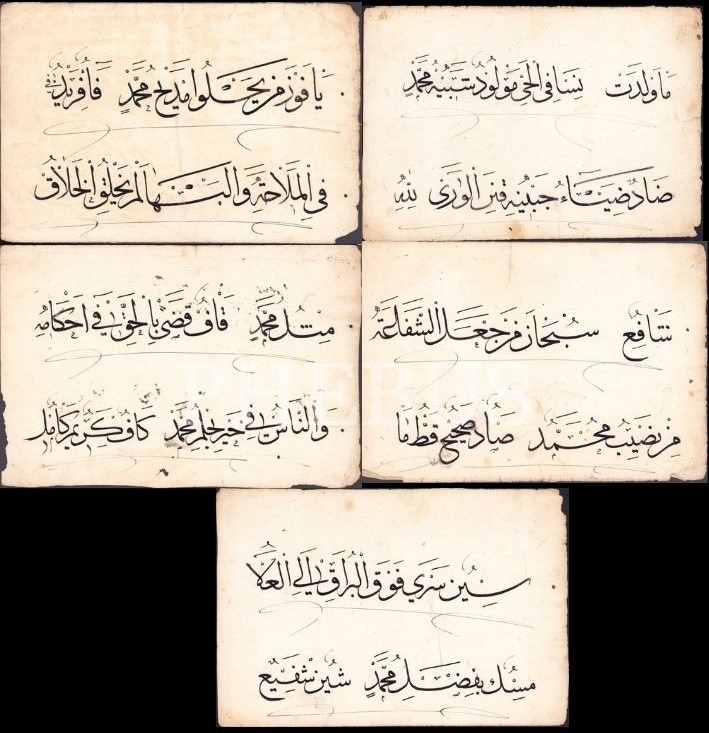 يا فوز من يحلوا مديح محمد فا فريد
في الملاحة والبها لم يخلق الخلاق
ما ولدت نسا في الحي مولود شبيه محمد
ضاد ضياء جبينه فتن الورى لله
مثل محمد قاف قضى بالحق في احكامه
والناس في خير بحلم محمد كاف كريم كامل
شافع سبحان من جعل الشفاعة
من نصيب محمد صاد صحيح قط ما
سين سرى فوق البراق الى العلا
مسك بفضل محمد شين شفيع
PHEBUS